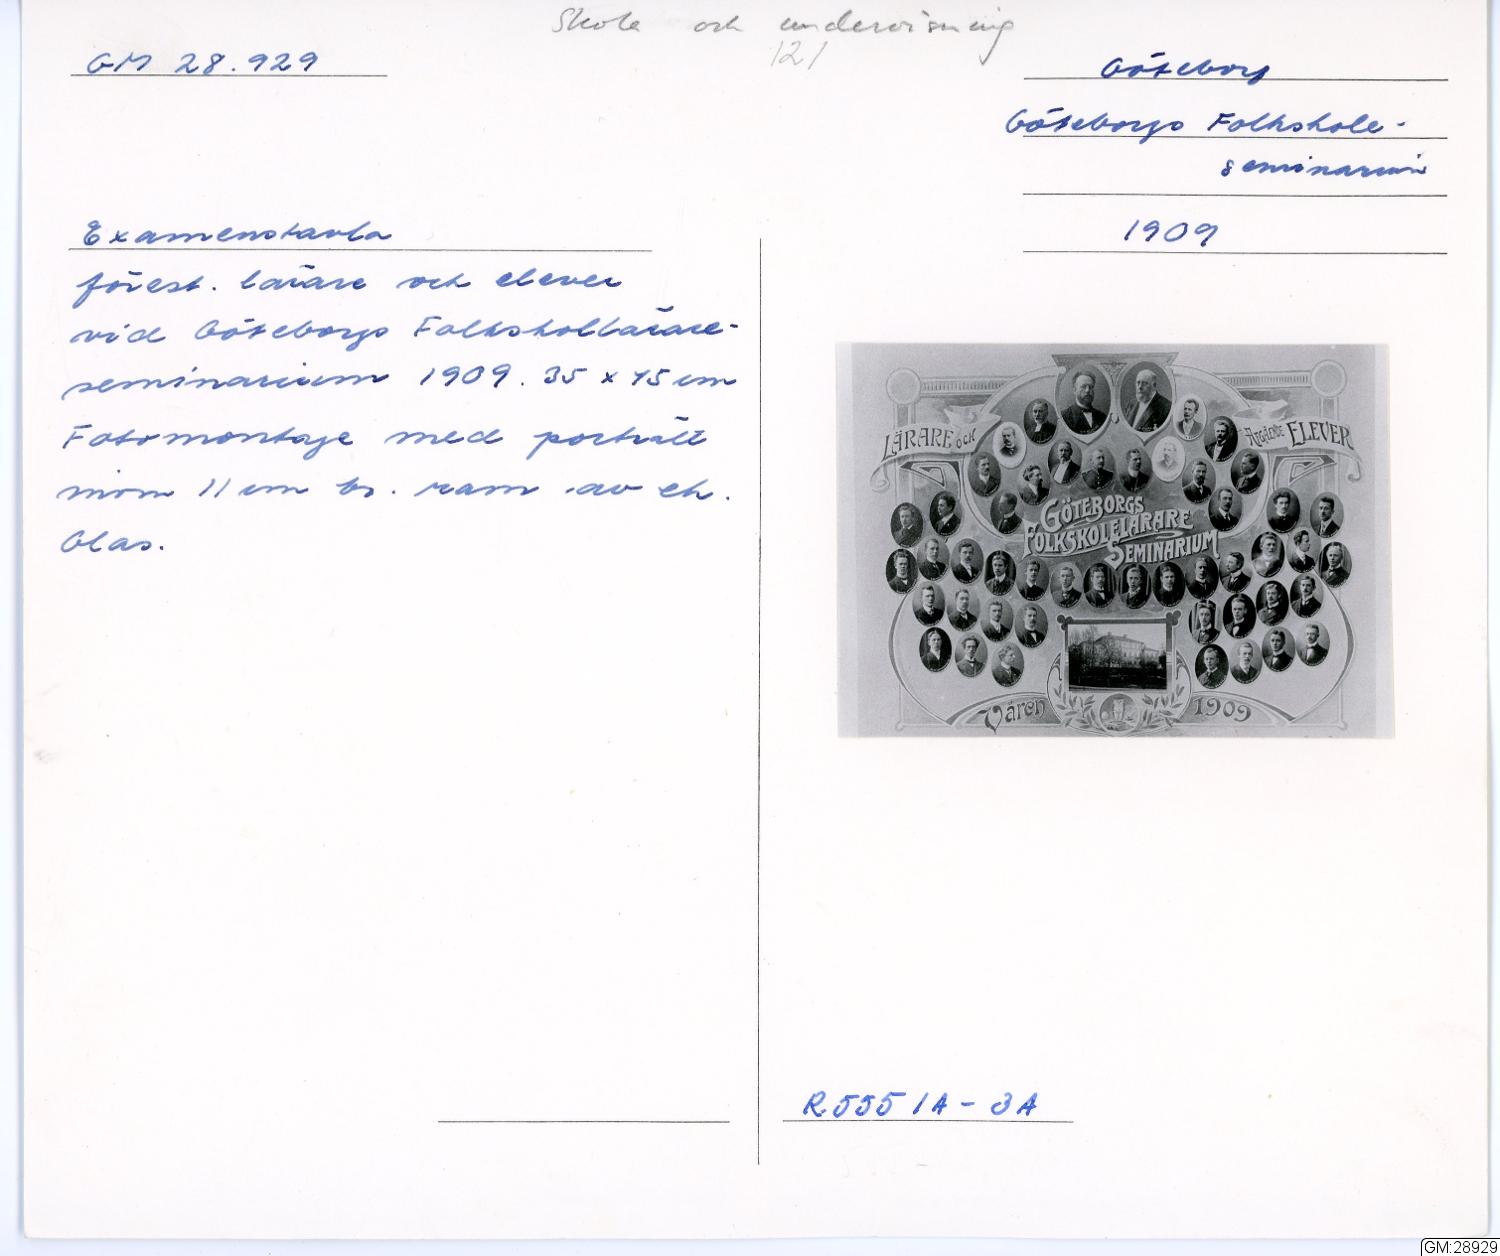 Skola och undervisning
121
GM 28.929
Göteborg
Göteborgs Folkskole-
seminarium
1909
Examenstavla
förest. lärare och elever
vid Göteborgs Folkskollärare-
seminarium 1909. 35 x 45 cm
Fotomontage med porträtt
inom 11 cm br. ram av ek.
Glas.
LÄRARE OCH
AVGÅENDE ELEVER
GÖTEBORGS
FOLKSKOLELÄRARE
SEMINARIUM
Våren 1909
R555 1A - 3A
GM:28929